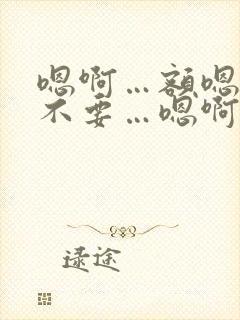 嗯啊…额嗯
不要…嗯啊
逯途